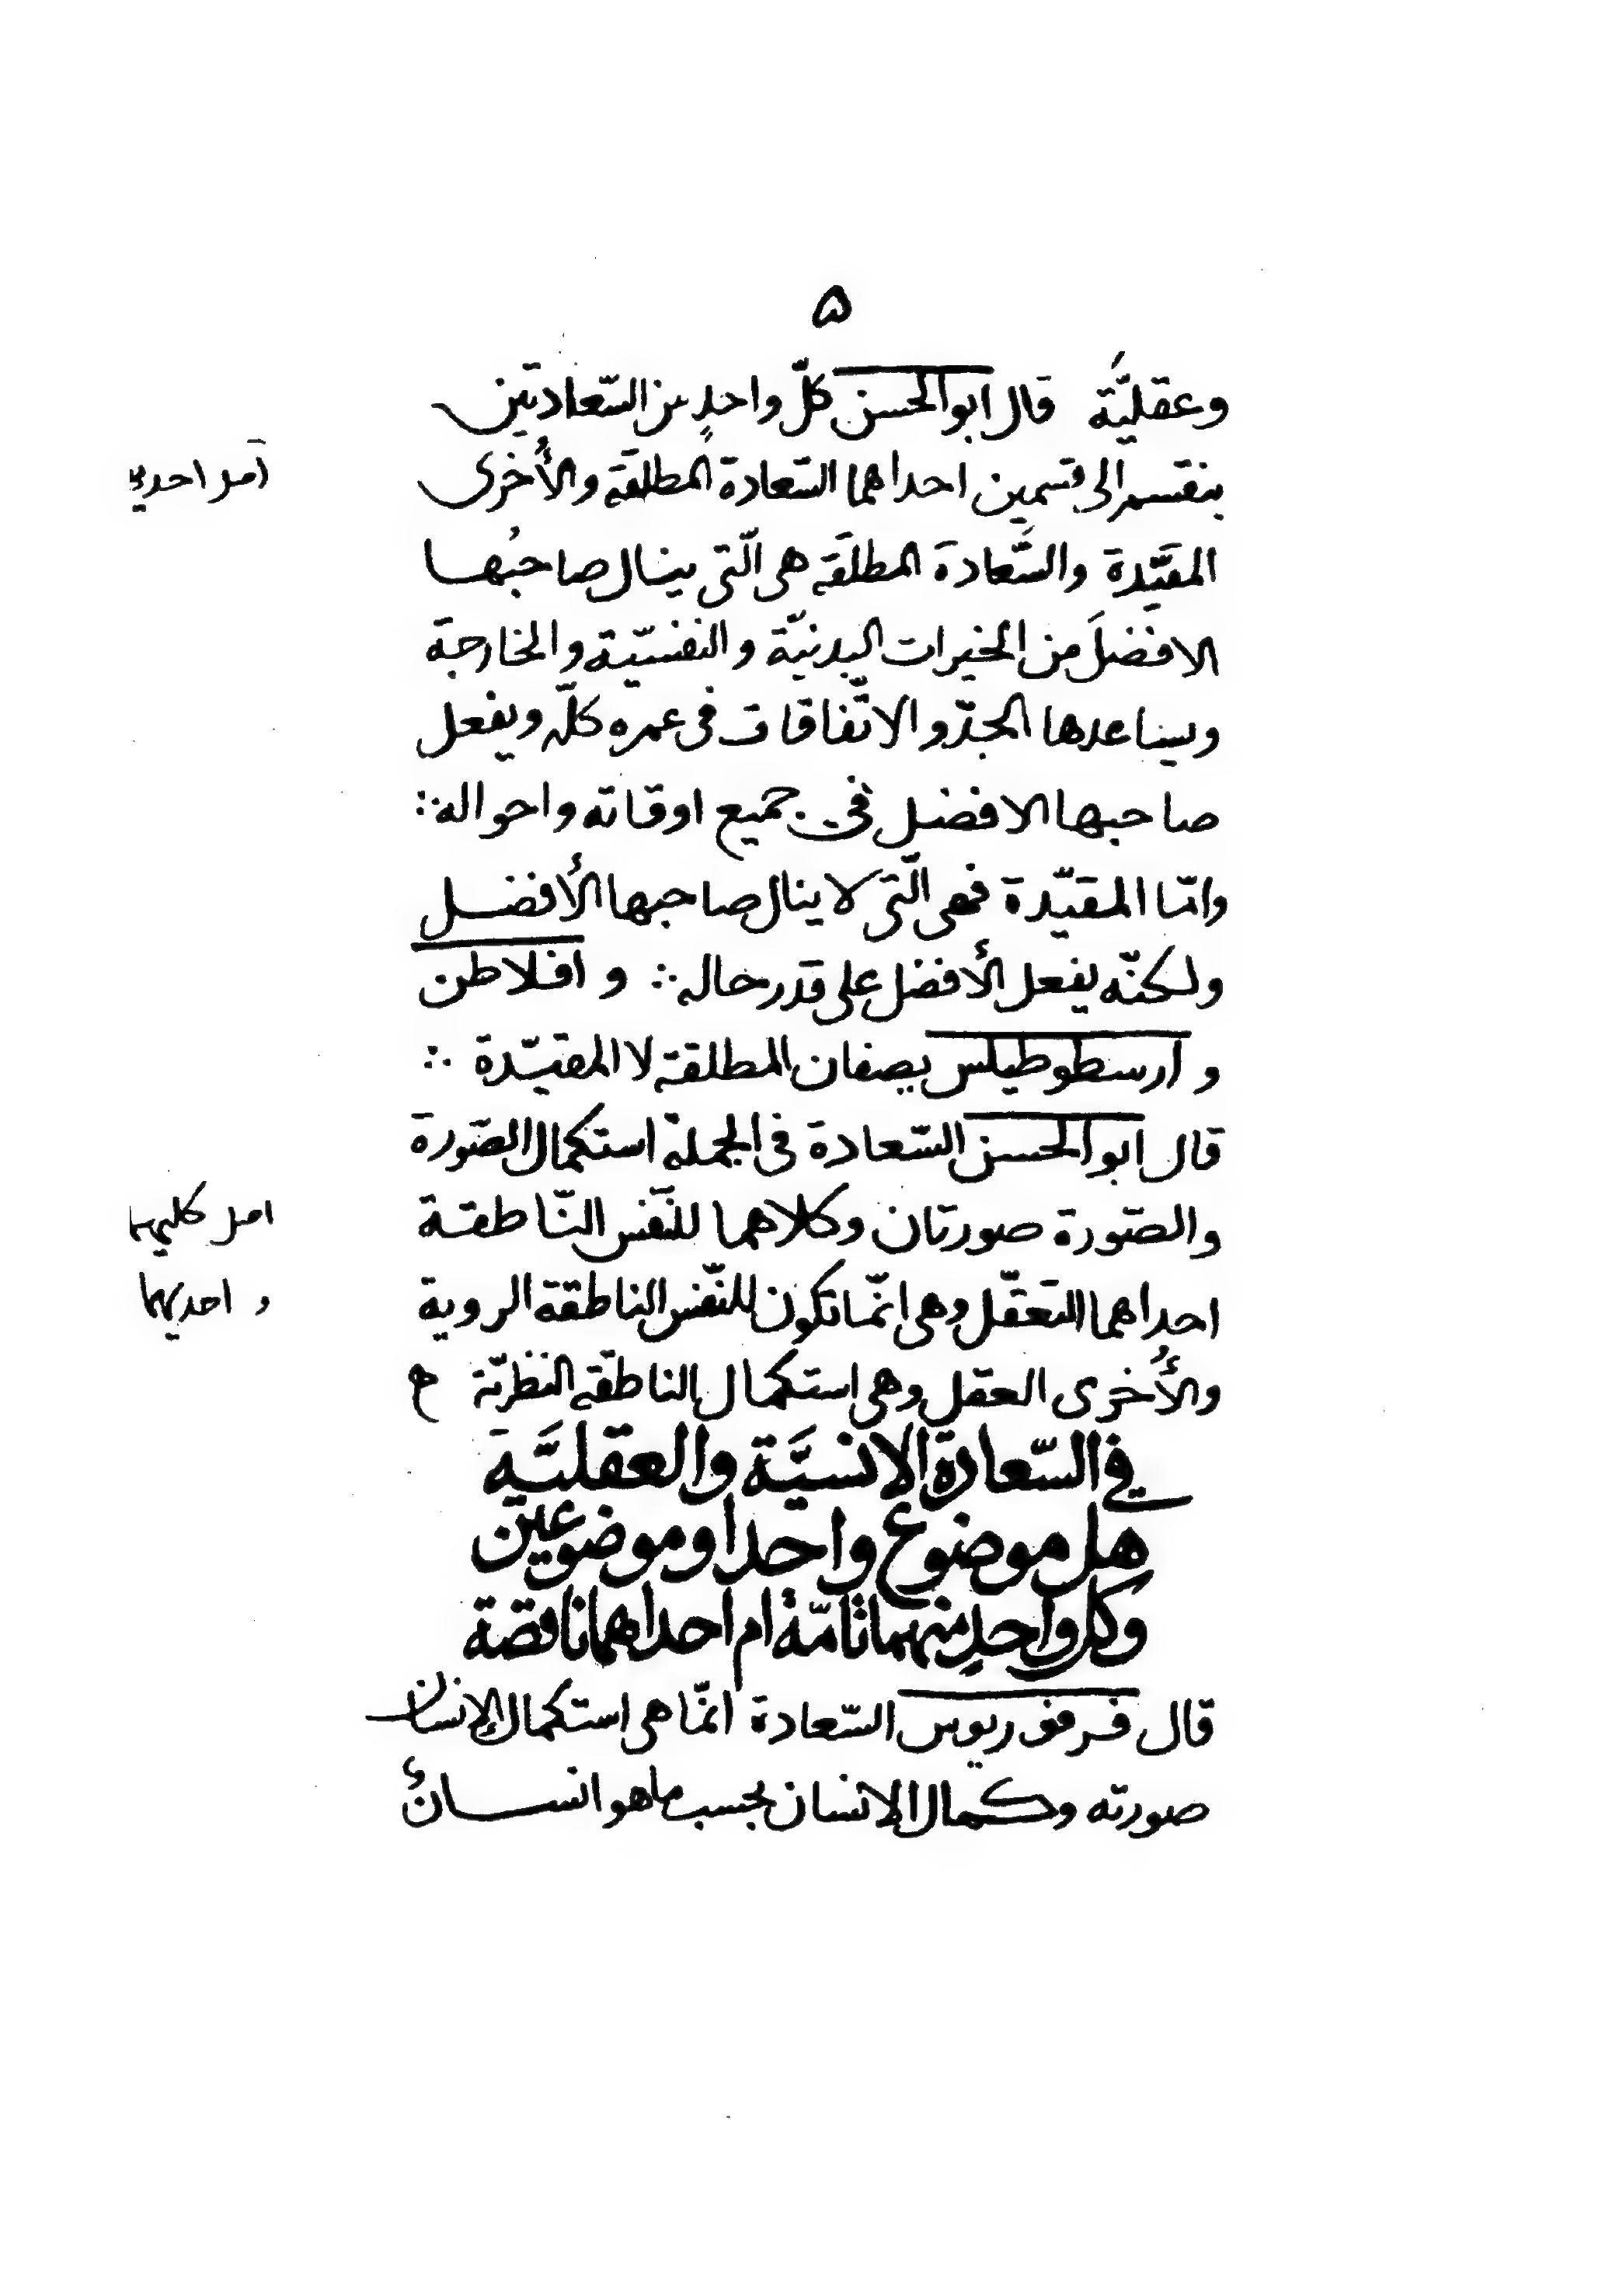 ۵
وعقليَّة قال ابوالحسن كلّ واحدٍ من السّعادتين
ينقسم الى قسمين احداهما السّعادة المطلقة والأُخرى
اصل احدى
المقيّدة والسَّعادة المطلقة هى الّتى ينال صاحبُها
الافضلَ من الخيرات البدنيّة والنفسيّة والخارجة
ويساعدها الجدّ والاتّفاقات فى عمره كلّه ويفعل
صاحبها الافضل فى جميع اوقاته واحواله ∴
وامّا المقيّدة فهى الّتى لا ينال صاحبها الأفضل
ولكنّه يفعل الأفضل على قدر حاله ∴ و افلاطن
و ارسطوطيلس يصفان المطلقة لا المقيّدة ∴
قال ابوالحسن السّعادة فى الجملة استكمال الصّورة
والصّورة صورتان وكلاهما للنّفس النّاطقة
اصل كليهما
احداهما التعقّل وهى انّما تكون للنّفس الناطقة الروية
و احديهما
والأُخرى العقل وهى استكمال الناطقة النظريّة ح
في السّعادة الانسيَّة والعقليَّة
هل موضوع واحد او موضوعين
وكل واحدٍ منهما تامّة ام احداهما ناقصة
قال فرفوريوس السّعادة انّما هى استكمال الإنسان
صورته وكمال الانسان بحسب ما هو انسانٌ